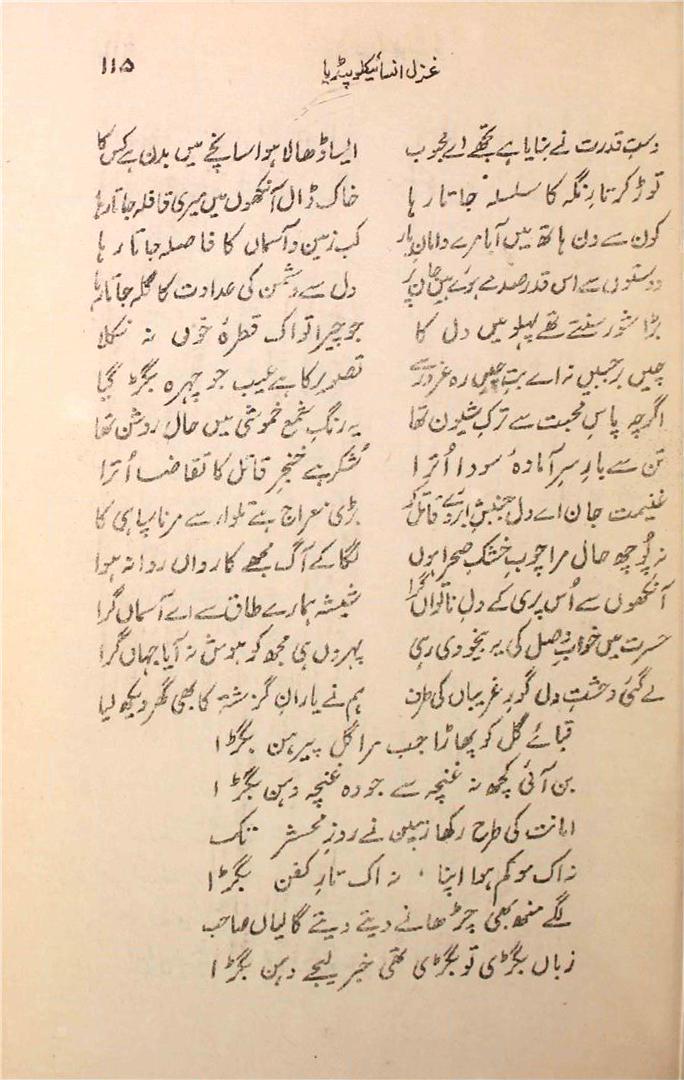 غزل انسائیکلوپیڈیا ۱۱۵
دستِ قدرت نے بنایا ہے تجھے اے محبوب ایسا ڈھالا ہوا سانچے میں بدن ہے کس کا
توڑ کر تارِ نگہ کا سلسلہ جاتا رہا خاک ڈال آنکھوں میں میری قافلہ جاتا رہا
کون سے دن ہاتھ میں آیا مرے دامانِ یار کب زمین و آسماں کا فاصلہ جاتا رہا
دوستوں سے اس قدر صدمے ہوئے ہیں جان پر دل سے دشمن کی عداوت کا گلہ جاتا رہا
بڑا شور سنتے تھے پہلو میں دل کا جو چیرا تو اک قطرۂ خوں نہ نکلا
چیں بر جبیں نہ اے بتِ چیں رہ غرور سے تصویر کا ہے عیب جو چہرہ بگڑ گیا
اگرچہ پاسِ محبت سے ترکِ شیون تھا یہ رنگِ شمع خموشی میں حال روشن تھا
تن سے بارِ سرِ آمادۂ سودا اُترا شکر ہے خنجرِ قاتل کا تقاضا اُترا
غنیمت جان اے دل جنبشِ ابروئے قاتل کو بڑی معراج ہے تلوار سے مرنا سپاہی کا
نہ پُوچھ حال مرا چوبِ خشکِ صحرا ہوں لگا کے آگ مجھے کارواں روانہ ہوا
آنکھوں سے اُس پری کے دلِ ناتواں گرا شیشہ ہمارے طاق سے اے آسماں گرا
حسرت میں خوابِ وصل کی بیخودی رہی پہروں ہی مجھ کو ہوش نہ آیا جہاں گرا
لے گئی وحشتِ دل گورِ غریباں کی طرف ہم نے یارانِ گزشتہ کا بھی گھر دیکھ لیا
قبائے گل کو پھاڑا جب مرا گل پیرہن بگڑا
بن آئی کچھ نہ غنچہ سے جو وہ غنچہ دہن بگڑا
امانت کی طرح رکھا زمین نے روزِ محشر تک
نہ اک مو کم ہوا اپنا ، نہ اک تارِ کفن بگڑا
لگے منھ بھی چڑھانے دیتے دیتے گالیاں صاحب
زباں بگڑی تو بگڑی تھی خبر لیجے دہن بگڑا